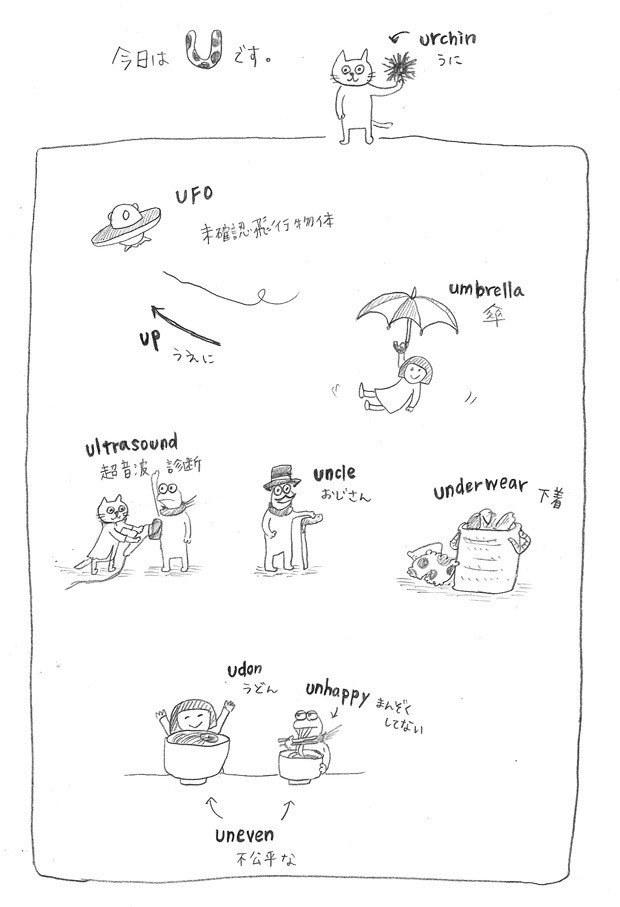 今日は U です。
urchin
うに
UFO
未確認飛行物体
umbrella
傘
up
うえに
ultrasound
超音波 診断
uncle
おじさん
underwear 下着
udon
うどん
unhappy まんぞく
してない
uneven
不公平な